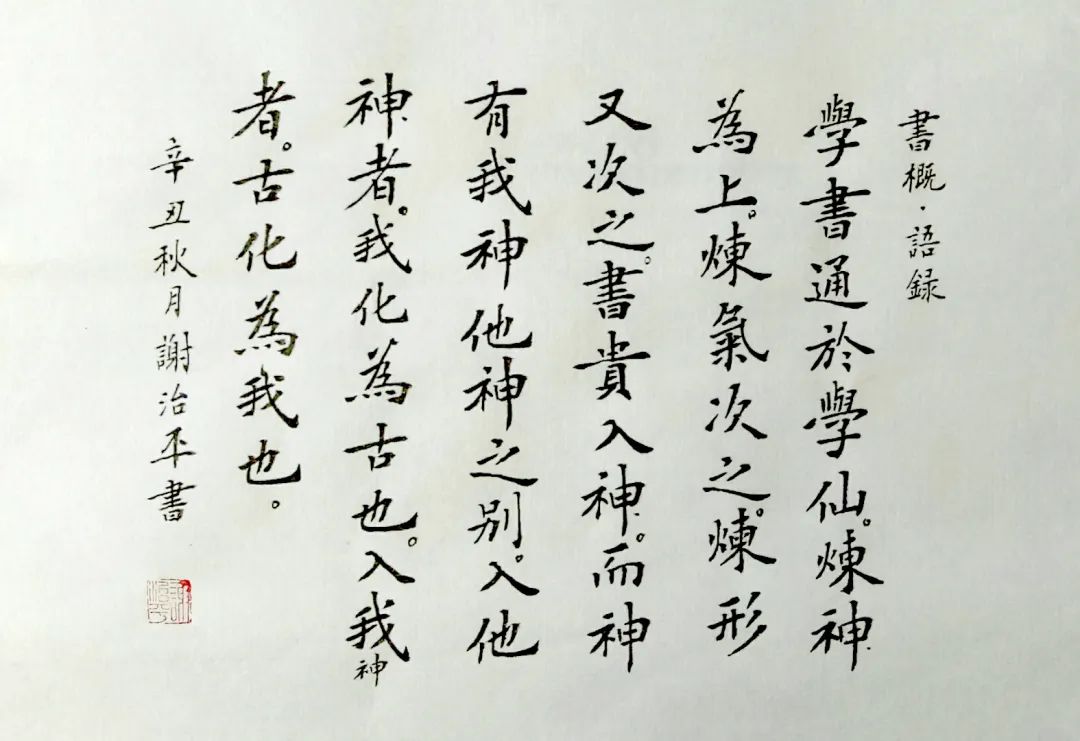 書概·語録
學書通於學仙。煉神
為上。煉氣次之。煉形
又次之。書貴入神。而神
有我神他神之別。入他
神者。我化為古也。入我神
者。古化為我也。
辛丑秋月謝治平書